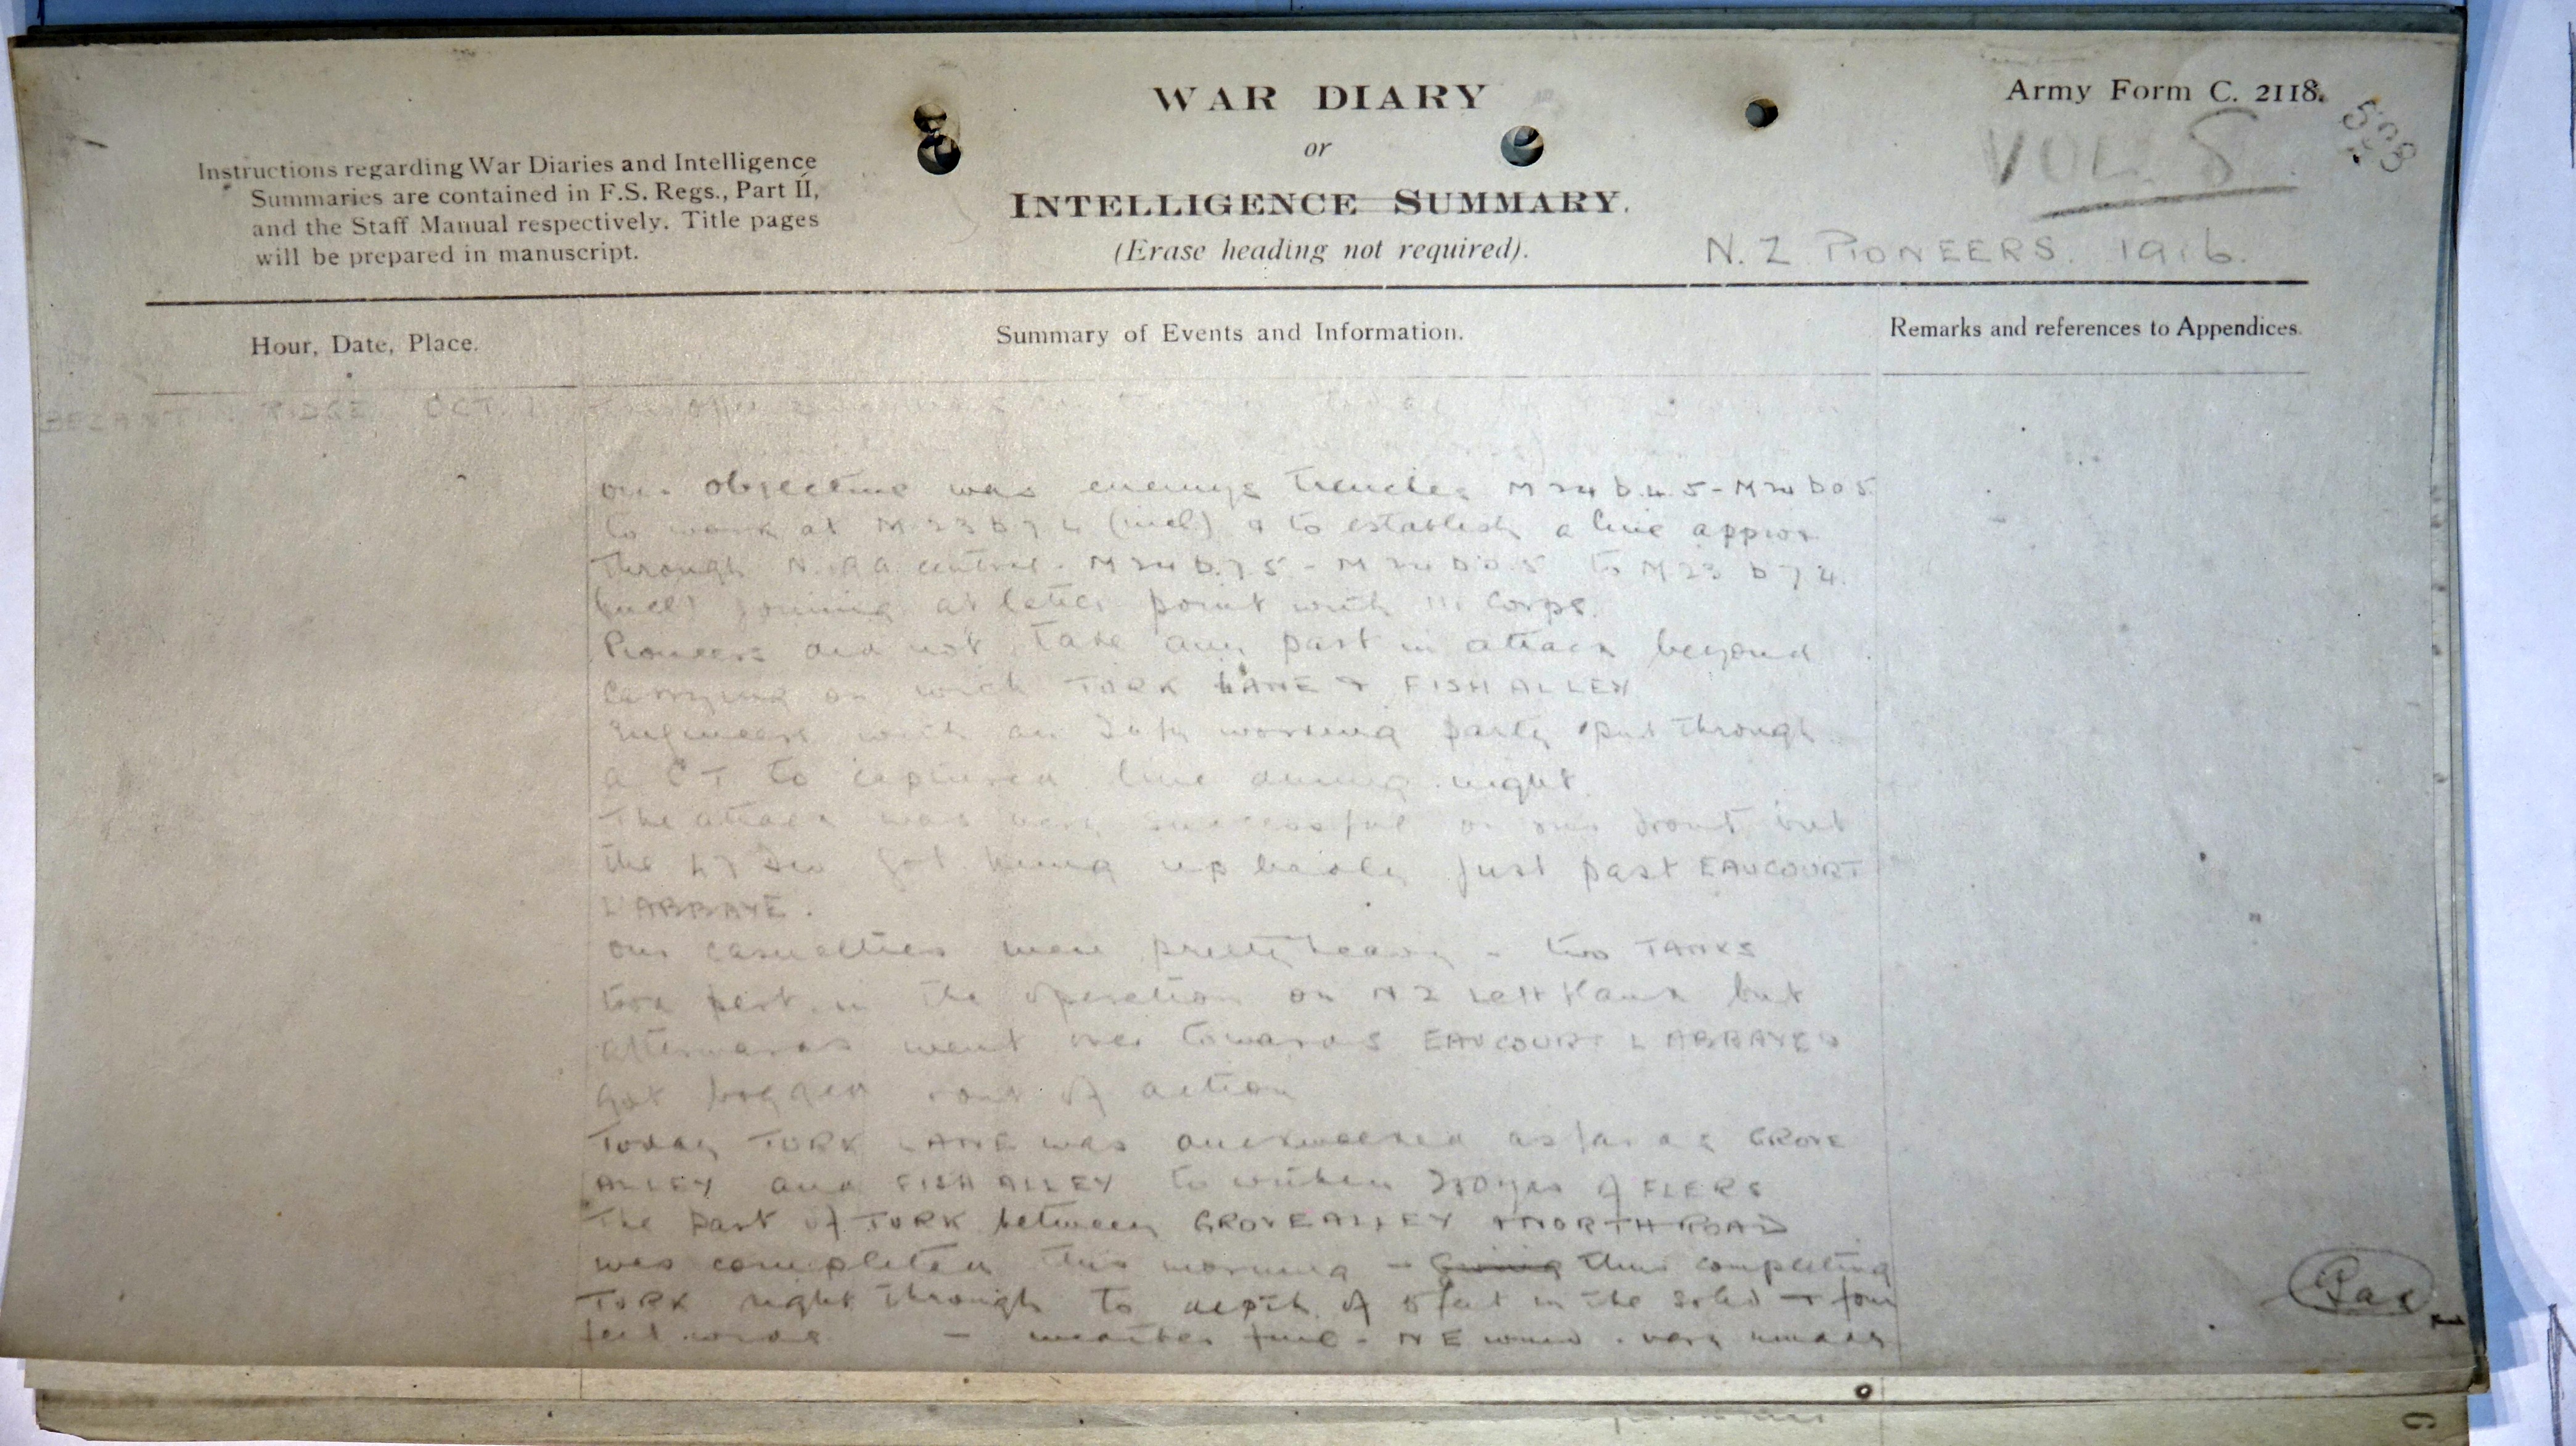 WAR DIARY
or
INTELLIGENCE SUMMARY.
(Erase heading not required).
Army Form C. 2118.
VOL. 8
Instructions regarding War Diaries and Intelligence
Summaries are contained in F.S. Regs., Part II,
and the Staff Manual respectively. Title pages
will be prepared in manuscript.
N.Z PIONEERS. 1916.
Hour, Date, Place.
Summary of Events and Information.
Remarks and references to Appendices.
RIDGE OCT. 1
our objective was enemys trenches M 24 b.4.5 - M 24 b 0 5
to work at M 23 b 7 4 (incl) & to establish a line approx
through central - M 24 b.7 5 - M 24 b 0.5 to M 23 b 7 4.
joining at latter point with III Corps.
Pioneers did not take any part in attack beyond
carrying on with TURK LANE & FISH ALLEY
Engineers with an Infy working party put through
a C T to captured line during night.
The attack was very successful on our front but
the 47 Div got hung up badly just past EAUCOURT
L'ABBAYE.
our casualties were pretty heavy - two TANKS
took part in the operation on N Z Left Flank but
afterwards went over towards EAUCOURT L ABBAYE &
got bogged & out of action
Today TURK LANE was as far as GROVE
ALLEY and FISH ALLEY to within yds of FLERS
The part of TURK between GROVE ALLEY & NORTH ROAD
was completed this morning - giving thus completing
TURK right through to depth of 5 feet in the solid & four
feet wide - weather fine - N E wind. very muddy